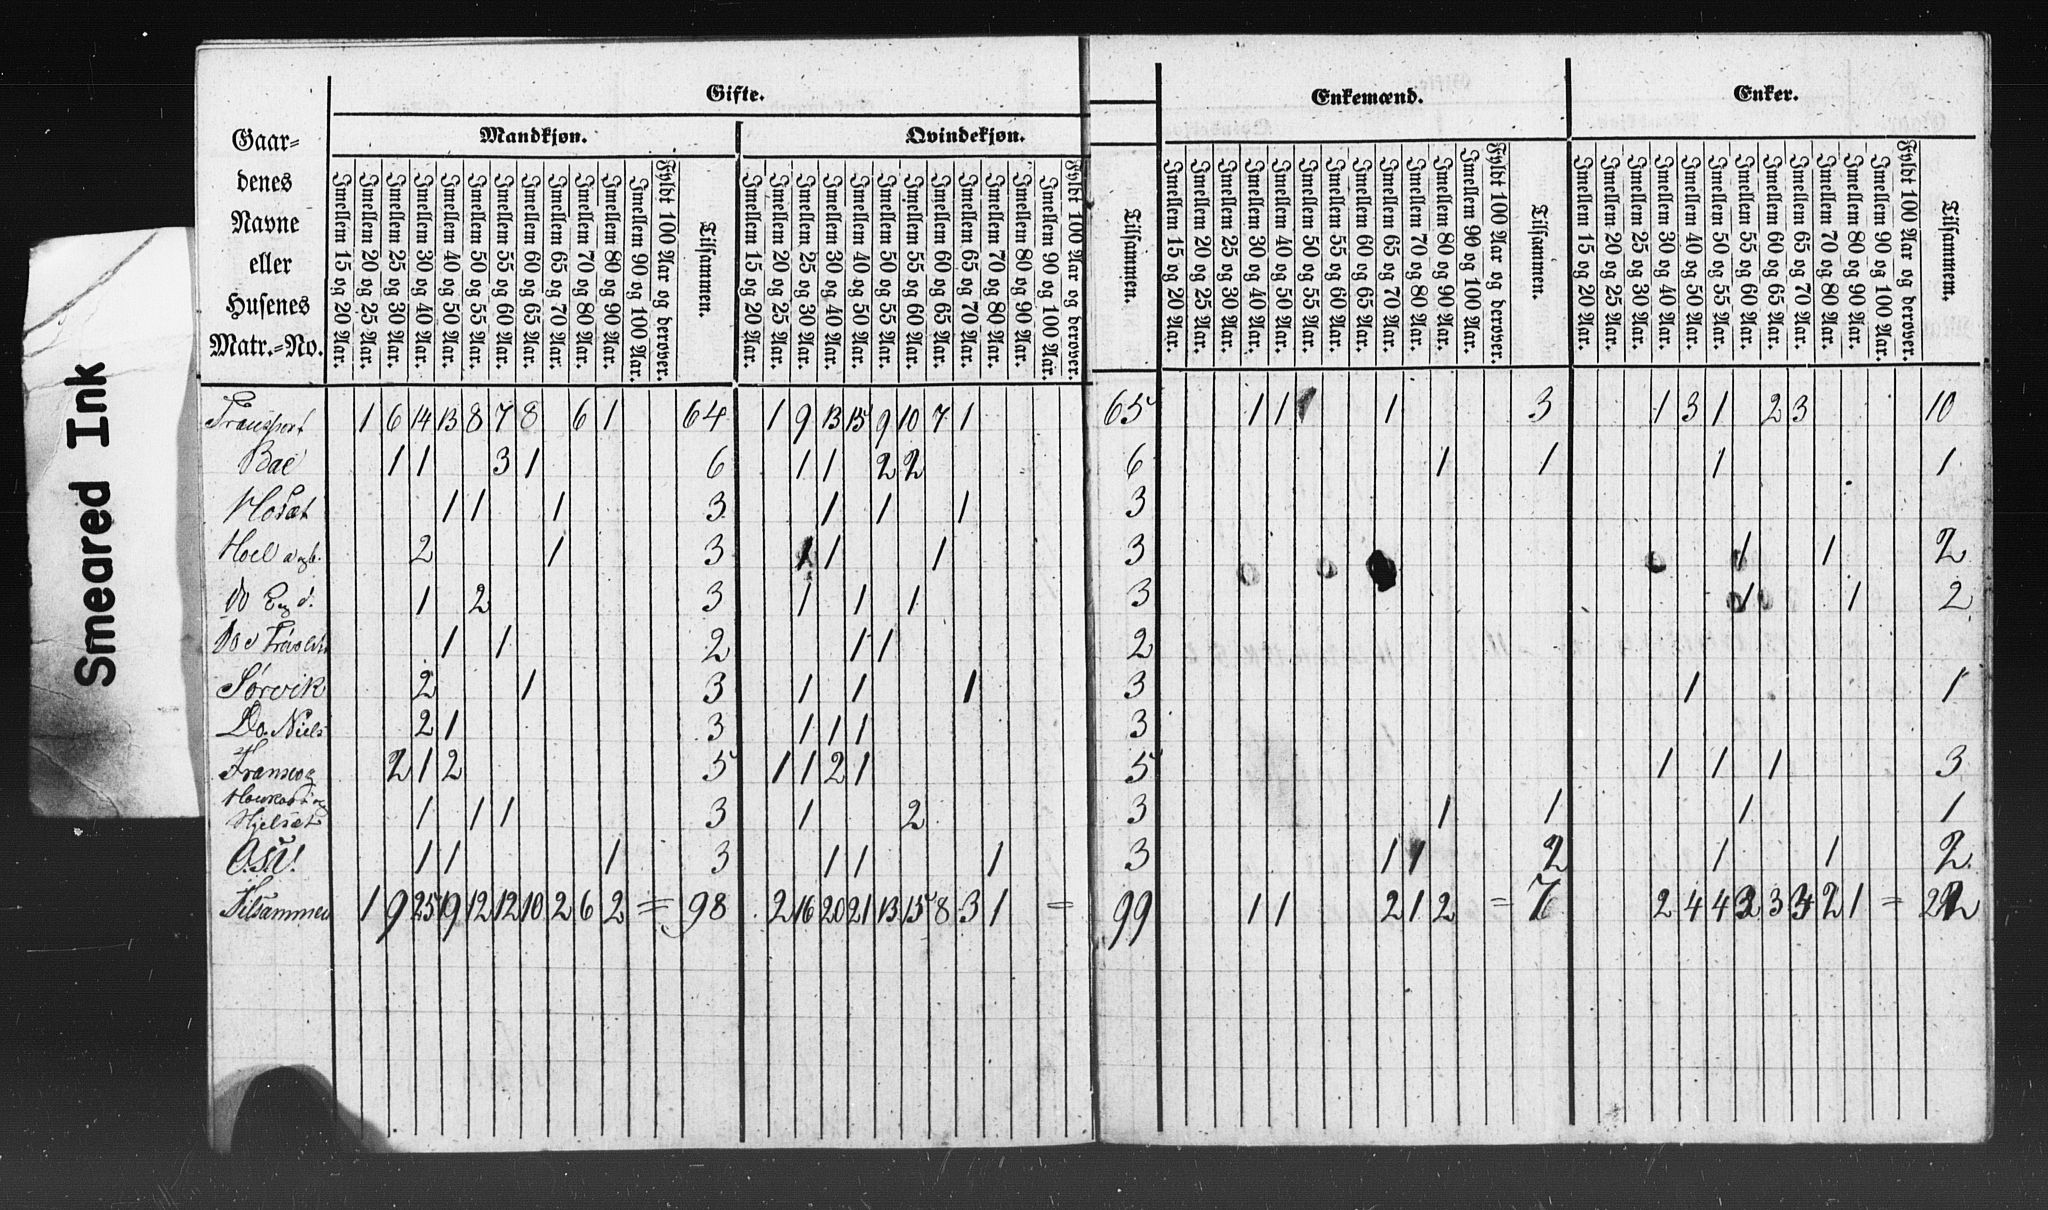 Smeared Ink
Gifte.
Enkemænd.
Enker.
Mandkjøn.
Qvindekjøn.
Gaar=
denes
Navne
eller
Husenes
Matr.=No.
Imellem 15 og 20 Aar.
Imellem 20 og 25 Aar.
Imellem 25 og 30 Aar.
Imellem 30 og 40 Aar.
Imellem 40 og 50 Aar.
Imellem 50 og 55 Aar.
Imellem 55 og 60 Aar.
Imellem 60 og 65 Aar.
Imellem 65 og 70 Aar.
Imellem 70 og 80 Aar.
Imellem 80 og 90 Aar.
Imellem 90 og 100 Aar.
Fyldt 100 Aar og derover.
Tilsammen.
Imellem 15 og 20 Aar.
Imellem 20 og 25 Aar.
Imellem 25 og 30 Aar.
Imellem 30 og 40 Aar.
Imellem 40 og 50 Aar.
Imellem 50 og 55 Aar.
Imellem 55 og 60 Aar.
Imellem 60 og 65 Aar.
Imellem 65 og 70 Aar.
Imellem 70 og 80 Aar.
Imellem 80 og 90 Aar.
Imellem 90 og 100 Aar.
Fyldt 100 Aar og derover.
Tilsammen.
Imellem 15 og 20 Aar.
Imellem 20 og 25 Aar.
Imellem 25 og 30 Aar.
Imellem 30 og 40 Aar.
Imellem 40 og 50 Aar.
Imellem 50 og 55 Aar.
Imellem 55 og 60 Aar.
Imellem 60 og 65 Aar.
Imellem 65 og 70 Aar.
Imellem 70 og 80 Aar.
Imellem 80 og 90 Aar.
Imellem 90 og 100 Aar.
Fyldt 100 Aar og derover.
Tilsammen.
Imellem 15 og 20 Aar.
Imellem 20 og 25 Aar.
Imellem 25 og 30 Aar.
Imellem 30 og 40 Aar.
Imellem 40 og 50 Aar.
Imellem 50 og 55 Aar.
Imellem 55 og 60 Aar.
Imellem 60 og 65 Aar.
Imellem 65 og 70 Aar.
Imellem 70 og 80 Aar.
Imellem 80 og 90 Aar.
Imellem 90 og 100 Aar.
Fyldt 100 Aar og derover.
Tilsammen.
Transport 1 6 14 13 8 7 8 6 1 64 1 9 13 15 9 10 7 1 65 1 1 1 3 1 3 1 2 3 10
Bae 1 1 3 1 6 1 1 2 2 6 1 1 1 1
Hosæt 1 1 1 3 1 1 1 3
Hoel 2 1 3 1 1 1 3 1 1 2
Do 1 2 3 1 1 1 3 1 1 2
Do 1 1 2 1 1 2
Sørvik 2 1 3 1 1 1 3 1 1
Do. Niels 2 1 3 1 1 1 3
2 1 2 5 1 1 2 1 5 1 1 1 3
Hjelset 1 1 1 3 1 2 3 1 1 1 1
1 1 1 3 1 1 1 3 1 1 2 1 1 2
Tilsammen 1 9 25 19 12 12 10 2 6 2 = 98 2 16 20 21 13 15 8 3 1 = 99 1 1 2 1 2 = 7 2 4 4 3 3 3 2 1 = 22